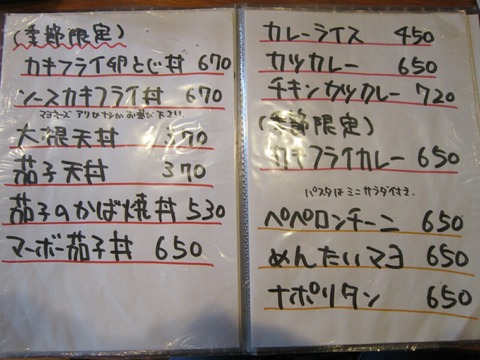 (季節限定)
カキフライ卵とじ丼 670
ソースカキフライ丼 670
マヨネーズ アリかナシか お選び下さい
大根天丼 370
茄子天丼 370
茄子のかば焼丼 530
マーボー茄子丼 650
カレーライス 450
カツカレー 650
チキンカツカレー 720
(季節限定)
カキフライカレー 650
パスタはミニサラダ付き.
ペペロンチーニ 650
めんたいマヨ 650
ナポリタン 650